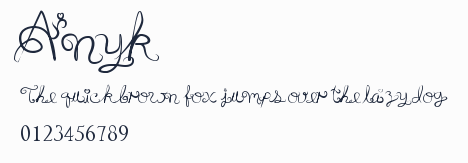 Arnyk
The quick brown fox jumps over the lazy dog
0123456789